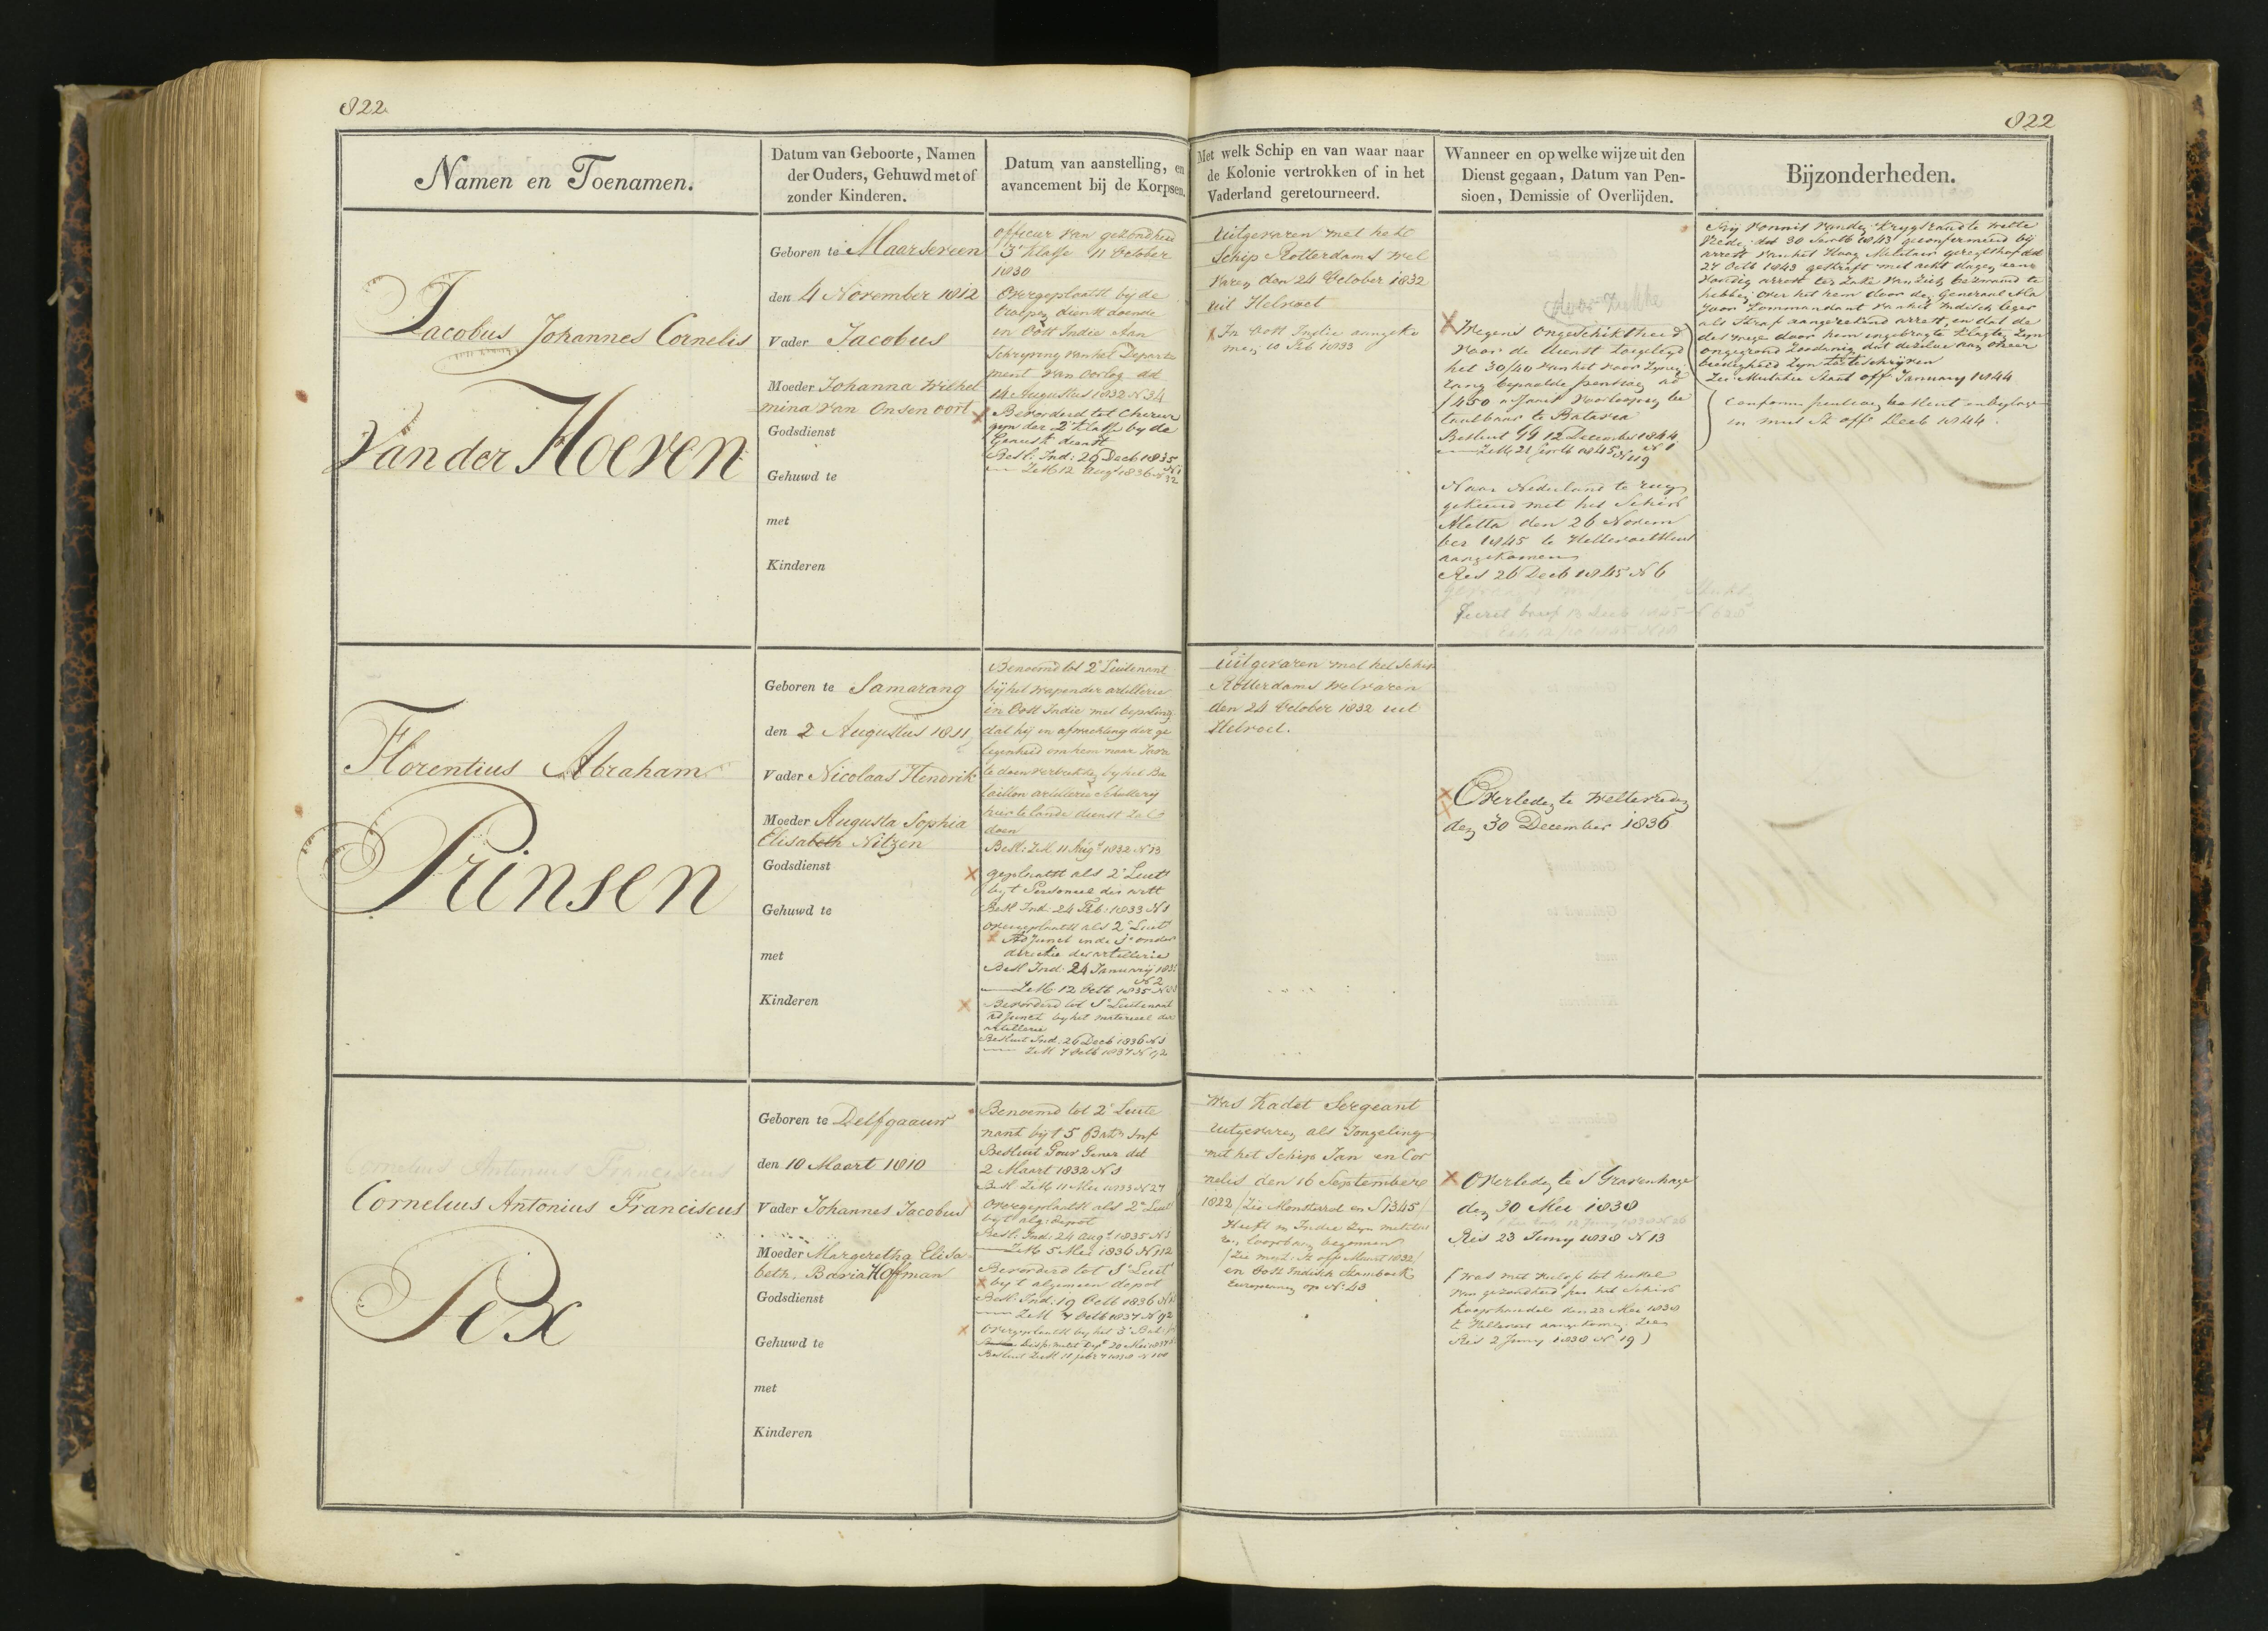 822
822
Namen en Toenamen.
Datum van Geboorte, Namen
der Ouders, Gehuwd met of
zonder Kinderen.
Datum van aanstelling, en
avancement bij de Korpsen.
Met welk Schip en van waar naar
de Kolonie vertrokken of in het
Vaderland geretourneerd.
Wanneer en op welke wijze uit den
Dienst gegaan, Datum van Pen-
sioen, Demissie of Overlijden.
Bijzonderheden.
Jacobus Johannes Cornelis
Van der Hoeven
Geboren te Maarseveen
den 4 November 1812
Vader Jacobus
Moeder Johanna Wilhel
mina van Onsenoort
Godsdienst
Gehuwd te
met
Kinderen
officier van gezondheid
3e Klasse 11 October
1830
Overgeplaatst bij de
troepen dienst doende
in Oost Indie Aan
schryving van het Departe
ment van Oorlog dd
14 Augustus 1832 N 34
Bevorderd tot Chirur
gyn der 2e Klasse by de
Geneesk dienst
Besl: Ind: 26 Decb 1835
N 1
Z M 12 Augt 1836 N 32
Uitgevaren met het
Schip Rotterdams Wel
varen den 24 October 1832
uit Helvoet
In Oost Indie aangeko
men 10 Feb 1833
Wegens ongeschiktheid
voor de dienst toegelegd
het 30/40 van het voor zynen
rang bepaalde pensioen ad
f 450 's jaars voorloopig be
taalbaar te Batavia
Besluit GG 12 December 1844
N 1
N 119
Naar Nederland te rug
gekeerd met het Schip
Aletta den 26 Novem
ber 1845 te Hellevoetsluis
aangekomen
Res 26 Decb 1845 N 6
By vonnis van den Krygsraad te Welte
vreden dd 30 1843 geconfirmeerd bij
arrest van het Hoog Militair geregtshof dd
27 Octb 1843 gestraft met acht dagen een
voudig arrest ter zake van zich bezwaard te
hebben over het hem door den Generaal Ma
joor Kommandant van het Indisch leger
als straf aangerekend arrest, en dat de
des wege door hem ingebragte klagte zyn
ongegrond zoodanig dat dezelve aan oneer
biedigheid zyn toeteschrijven
Zie Mutatie Staat off January 1844
Conform pensioen besluit en bylage
in mut St off Decb 1844.
Florentius Abraham
Prinsen
Geboren te Samarang
den 2 Augustus 1811
Vader Nicolaas Hendrik
Moeder Augusta Sophia
Elisabeth Nitzen
Godsdienst
Gehuwd te
met
Kinderen
Benoemd tot 2e Luitenant
bij het wapen der artillerie
in Oost Indie met bepaling
dat hij in afwachting der ge
legenheid om hem naar Java
te doen vertrekken by het Ba
taillon artillerie Schuttery
hier te lande dienst zal
doen
Besl: ZM 11 Augt 1832 N 13
geplaatst als 2e Luit
by t Personeel der artt
Besl Ind: 24 Feb: 1833 N 1
overgeplaatst als 2e Luit
Adjunct in de 1e onder
directie der artillerie
Besl Ind: 24 January 1835
N 2
ZM 12 Octb 1835
Bevorderd tot 1e Luitenant
adjunct by het materieel der
artillerie
Besluit Ind: 26 Decb 1836 N 1
ZM 7 Octb 1837 N 92
Uitgevaren met het Schip
Rotterdams Welvaren
den 24 October 1832 uit
Helvoet.
Overleden te Weltevreden
den 30 December 1836
Cornelius Antonius Franciscus
Cornelius Antonius Franciscus
Pex
Geboren te Delfgaauw
den 10 Maart 1810
Vader Johannes Jacobus
Moeder Margaretha Elisa
beth Baria Hoffman
Godsdienst
Gehuwd te
met
Kinderen
Benoemd tot 2e Luite
nant by t 5 Batn Inf
Besluit Gouv Gener dd
2 Maart 1832 N 1
Besl ZM 11 Mei 1833 N 27
Overgeplaatst als 2e Luit
by t alg: depot
Besl: Ind: 24 Augt 1835 N 1
ZM 5 Mei 1836 N 112
Bevorderd tot 1e Luit
by t algemeen depot
Besl: Ind: 19 Octb 1836
ZM 7 Octb 1837 N 92
Overgeplaatst by het 3e Bat:
Was Kadet Sergeant
Uitgevaren als Jongeling
met het Schip Jan en Cor
nelis den 16 September
1822 (Zie Monsterrol en S 1345)
Heeft in Indie zyn militai
ren loopbaan begonnen
(Zie mut: St off Maart 1832)
en Oost Indisch Stamboek
Europeanen op N. 43
Overleden te S Gravenhage
den 30 Mei 1838
Res 23 Juny 1838 N 13
(was met verlof tot herstel
van gezondheid per het Schip
Koophandel den 23 Mei 1838
te Hellevoet aangekomen Zie
Res 2 Juny 1838 N 19)